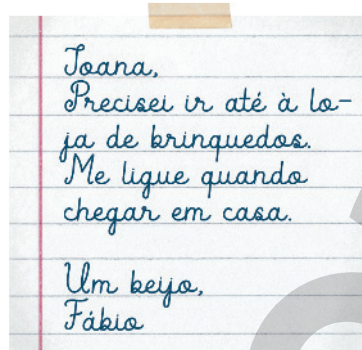 Joana,
Precisei ir até à lo-
ja de brinquedos.
Me ligue quando
chegar em casa.
Um beijo,
Fábio